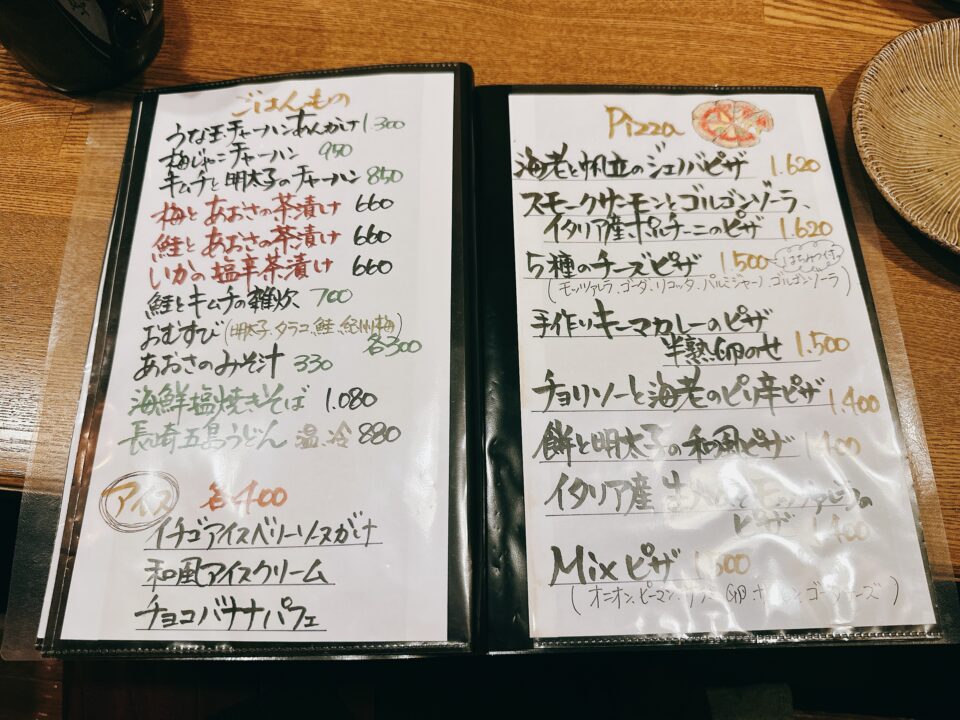 ごはんもの
うな玉チャーハンあんかけ 1.300
梅じゃこチャーハン 950
キムチと明太子のチャーハン 850
梅とあおさの茶漬け 660
鮭とあおさの茶漬け 660
いかの塩辛茶漬け 660
鮭とキムチの雑炊 700
おむすび(明太子、タラコ、鮭、紀州梅)
各300
あおさのみそ汁 330
海鮮塩焼きそば 1.080
長崎五島うどん 温、冷 880
アイス 各400
イチゴアイスベリーソースがけ
和風アイスクリーム
チョコバナナパフェ
Pizza
海老と帆立のジェノバピザ 1.620
スモークサーモンとゴルゴンゾーラ、
イタリア産ポルチーニのピザ 1.620
5種のチーズピザ 1.500 はちみつ付
(モッツァレラ、ゴーダ、リコッタ、パルミジャーノ、ゴルゴンゾーラ)
手作りキーマカレーのピザ
半熟卵のせ 1.500
チョリソーと海老のピリ辛ピザ 1.400
餅と明太子の和風ピザ 1.400
イタリア産 生
ピザ 1.400
Mixピザ
(オニオン、ピーマン、